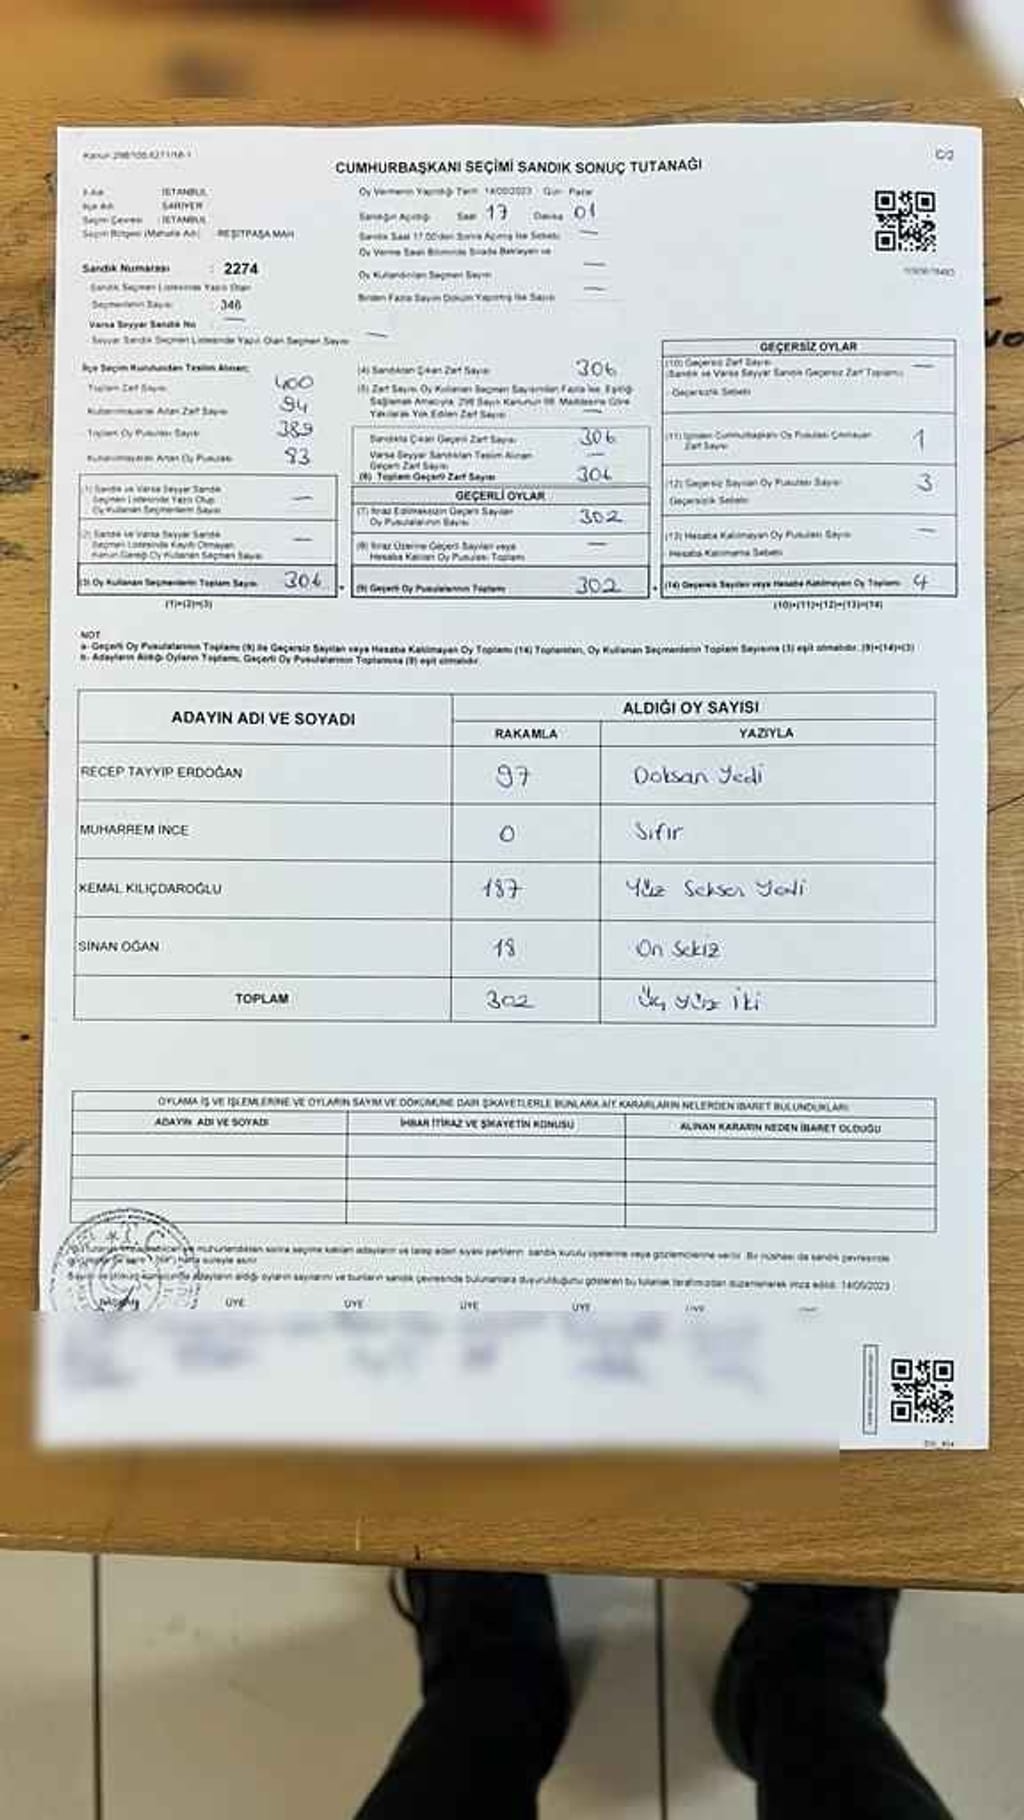 CUMHURBAŞKANI SEÇİMİ SANDIK SONUÇ TUTANAĞI
C/2
İli Adı : İSTANBUL
İlçe Adı : SARIYER
Seçim Çevresi : İSTANBUL
Seçim Bölgesi (Mahalle Adı) : REŞİTPAŞA MAH
Oy Vermenin Yapıldığı Tarih 14/05/2023 Gün Pazar
Sandığın Açıldığı Saat 17 Dakika 01
Sandık Saat 17.00'den Sonra Açılmış İse Sebebi
Oy Verme Saati Bitiminde Sırada Bekleyen ve
Oy Kullandırılan Seçmen Sayısı
Birden Fazla Sayım Döküm Yapılmış İse Sayısı
Sandık Numarası : 2274
Sandık Seçmen Listesinde Yazılı Olan
Seçmenlerin Sayısı 346
Varsa Seyyar Sandık No
Seyyar Sandık Seçmen Listesinde Yazılı Olan Seçmen Sayısı
İlçe Seçim Kurulundan Teslim Alınan;
Toplam Zarf Sayısı 400
Kullanılmayarak Artan Zarf Sayısı 94
Toplam Oy Pusulası Sayısı 389
Kullanılmayarak Artan Oy Pusulası 83
(1) Sandık ve Varsa Seyyar Sandık
Seçmen Listesinde Yazılı Olup
Oy Kullanan Seçmenlerin Sayısı
(2) Sandık ve Varsa Seyyar Sandık
Seçmen Listesinde Kayıtlı Olmayan
Kanun Gereği Oy Kullanan Seçmen Sayısı
(3) Oy Kullanan Seçmenlerin Toplam Sayısı 306
(1)+(2)=(3)
(4) Sandıktan Çıkan Zarf Sayısı 306
(5) Zarf Sayısı Oy Kullanan Seçmen Sayısından Fazla İse, Eşitliği
Sağlamak Amacıyla, 298 Sayılı Kanunun 98. Maddesine Göre
Yakılarak Yok Edilen Zarf Sayısı
Sandıkta Çıkan Geçerli Zarf Sayısı 306
Varsa Seyyar Sandıktan Teslim Alınan
Geçerli Zarf Sayısı
(6) Toplam Geçerli Zarf Sayısı 306
GEÇERLİ OYLAR
(7) İtiraz Edilmeksizin Geçerli Sayılan
Oy Pusulalarının Sayısı 302
(8) İtiraz Üzerine Geçerli Sayılan veya
Hesaba Katılan Oy Pusulası Toplamı
(9) Geçerli Oy Pusulalarının Toplamı 302
GEÇERSİZ OYLAR
(10) Geçersiz Zarf Sayısı
(Sandık ve Varsa Seyyar Sandık Geçersiz Zarf Toplamı)
Geçersizlik Sebebi
(11) İçinden Cumhurbaşkanı Oy Pusulası Çıkmayan
Zarf Sayısı 1
(12) Geçersiz Sayılan Oy Pusulası Sayısı 3
Geçersizlik Sebebi
(13) Hesaba Katılmayan Oy Pusulası Sayısı
Hesaba Katılmama Sebebi
(14) Geçersiz Sayılan veya Hesaba Katılmayan Oy Toplamı 4
(10)+(11)+(12)+(13)=(14)
NOT
a- Geçerli Oy Pusulalarının Toplamı (9) ile Geçersiz Sayılan veya Hesaba Katılmayan Oy Toplamı (14) Toplamları, Oy Kullanan Seçmenlerin Toplam Sayısına (3) eşit olmalıdır. (9)+(14)=(3)
b- Adayların Aldığı Oyların Toplamı, Geçerli Oy Pusulalarının Toplamına (9) eşit olmalıdır.
ADAYIN ADI VE SOYADI ALDIĞI OY SAYISI
RAKAMLA YAZIYLA
RECEP TAYYİP ERDOĞAN 97 Doksan Yedi
MUHARREM İNCE 0 Sıfır
KEMAL KILIÇDAROĞLU 187 Yüz Seksen Yedi
SİNAN OĞAN 18 On Sekiz
TOPLAM 302 Üç Yüz İki
OYLAMA İŞ VE İŞLEMLERİNE VE OYLARIN SAYIM VE DÖKÜMÜNE DAİR ŞİKAYETLERLE BUNLARA AİT KARARLARIN NELERDEN İBARET BULUNDUKLARI
ADAYIN ADI VE SOYADI İHBAR İTİRAZ VE ŞİKAYETİN KONUSU ALINAN KARARIN NEDEN İBARET OLDUĞU
mühürlendikten sonra seçime katılan adayların ve talep eden siyasi partilerin sandık kurulu üyelerine veya gözlemcilerine verilir. Bir nüshası da sandık çevresinde
adayların aldığı oyların sayılarını ve bunların sandık çevresinde bulunanlara duyurulduğunu gösteren bu tutanak tarafımızdan düzenlenerek imza edildi. 14/05/2023
T.C.
BAŞKAN ÜYE ÜYE ÜYE ÜYE ÜYE